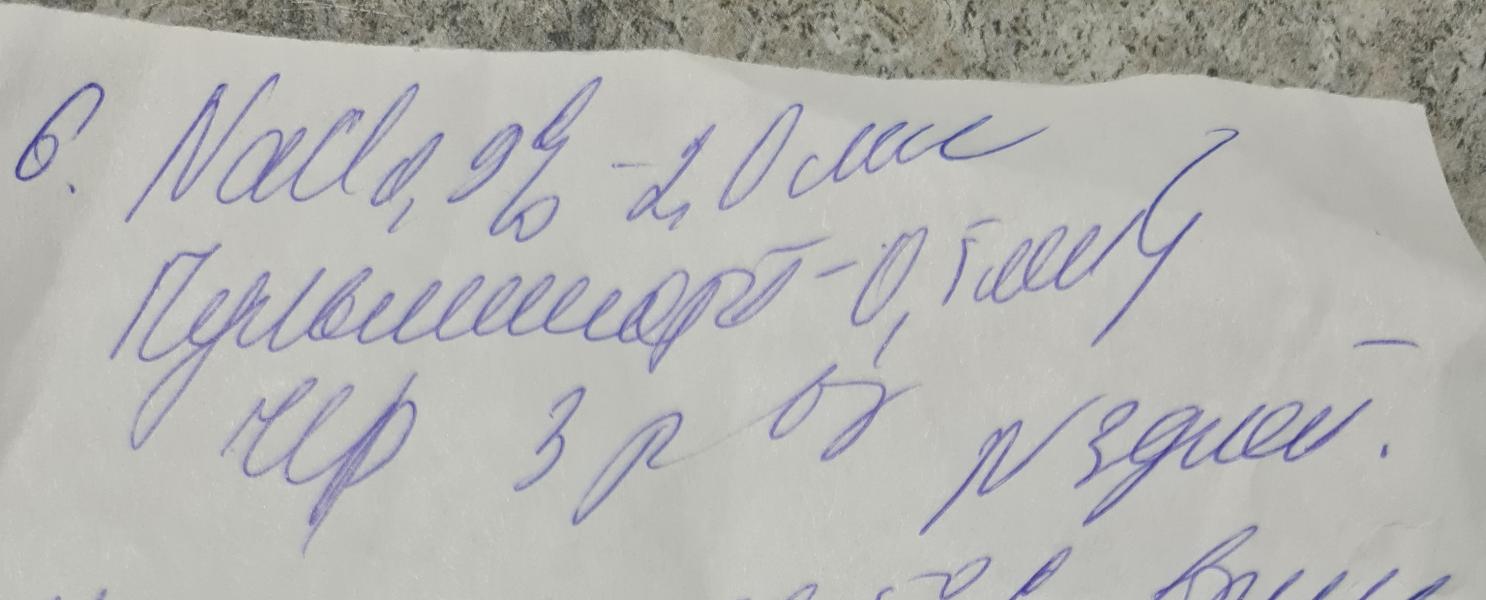 6. NaCl 0,9% - 2,0 мл
Пульмикорт - 0,5 мл
3 р в
N 3 дней.